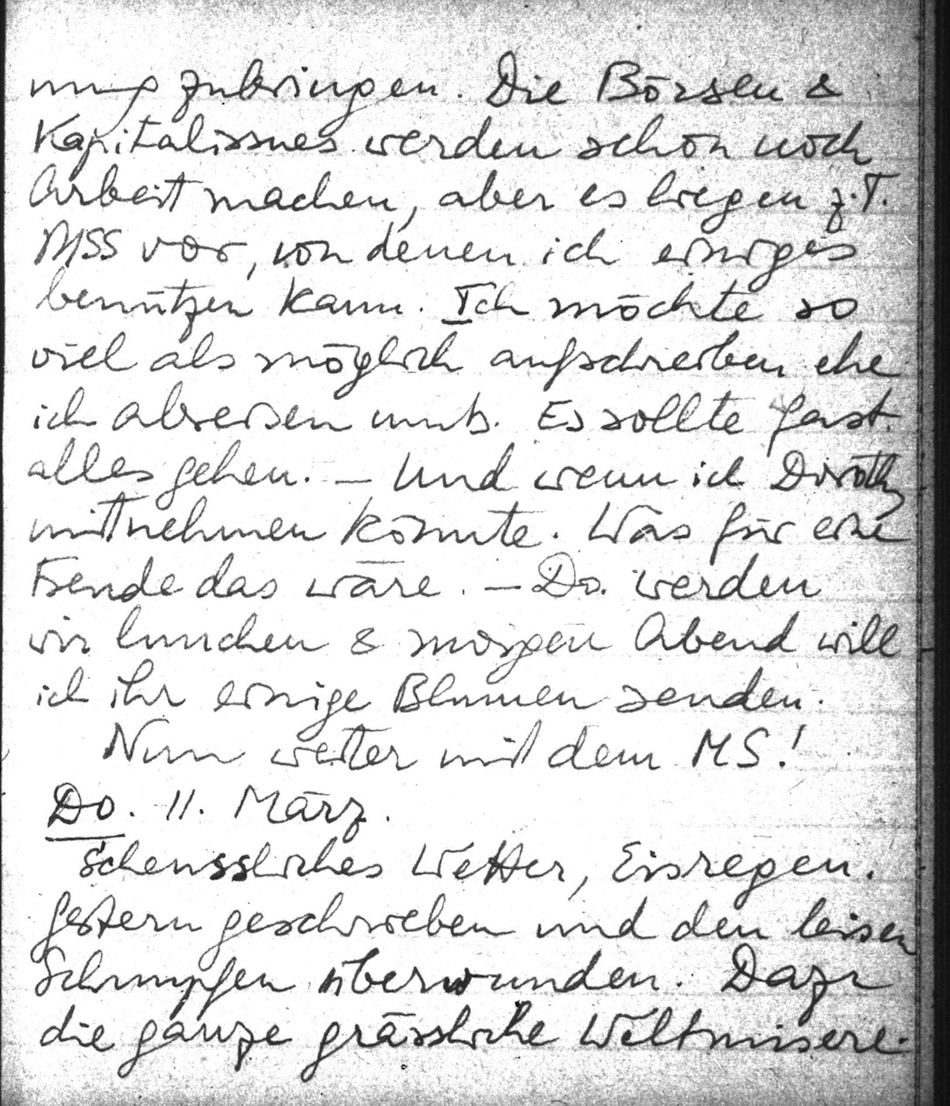 nung zubringen. Die Börsen &
Kapitalismes werden schon noch
Arbeit machen, aber es liegen z.T.
MSS vor, von denen ich einiges
benützen kann. Ich möchte so
viel als möglich aufschreiben ehe
ich abreisen muss. Es sollte fast
alles gehen. – Und wenn ich Doroth
mitnehmen könnte. Was für eine
Freude das wäre. – Do. werden
wir lunchen & morgen Abend will
ich ihr einige Blumen senden.
Nun weiter mit dem MS!
Do. 11. März.
Scheussliches Wetter, Eisregen.
Gestern geschrieben und den leisen
Schnupfen überwunden. Dazu
die ganze grässliche Weltmisere.